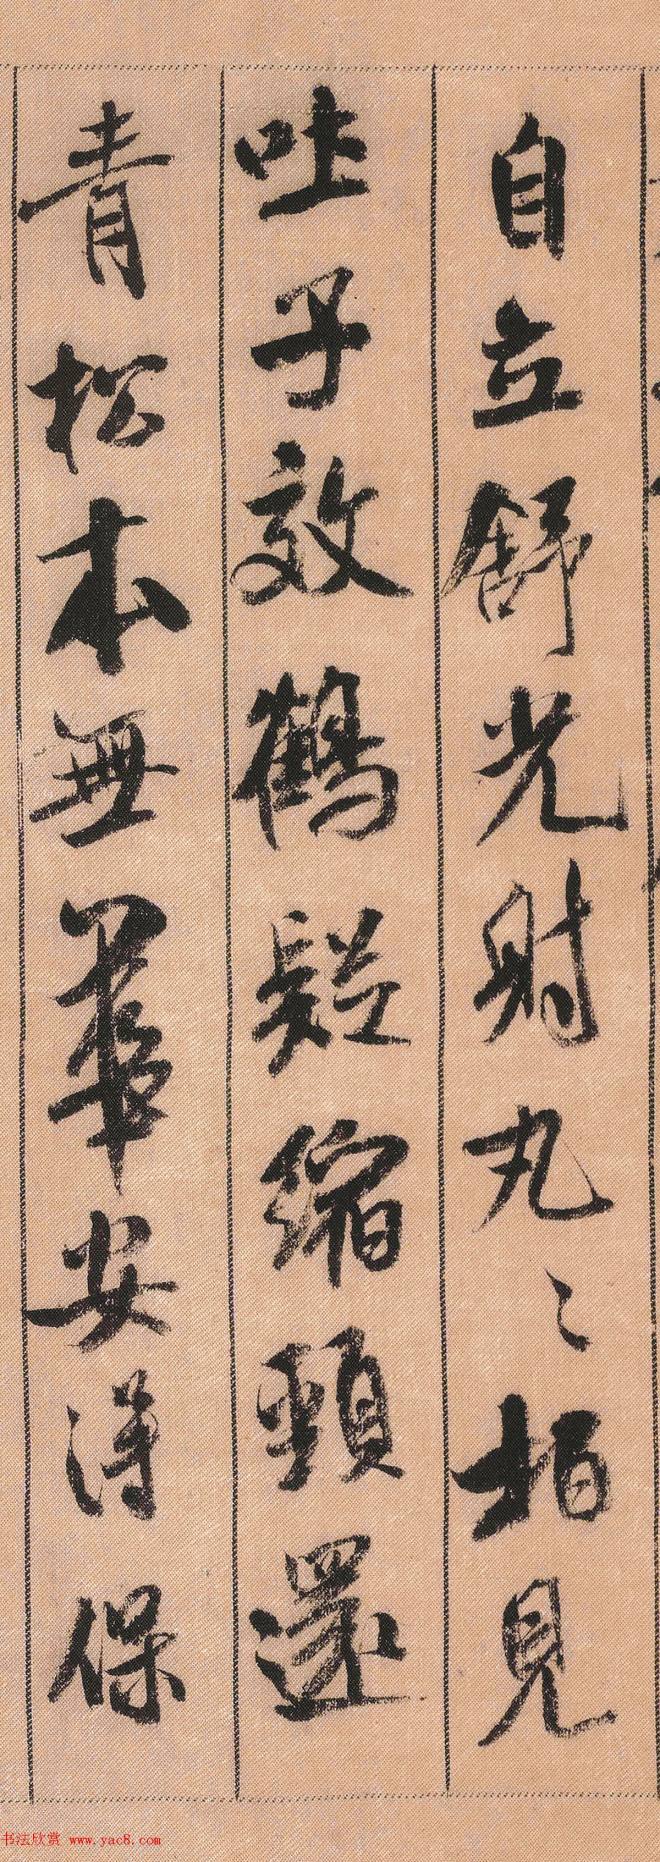 自立舒光射丸〻柏見
吐子效鶴疑縮頸還
青松本無華安得保
书法欣赏 www.yac8.com